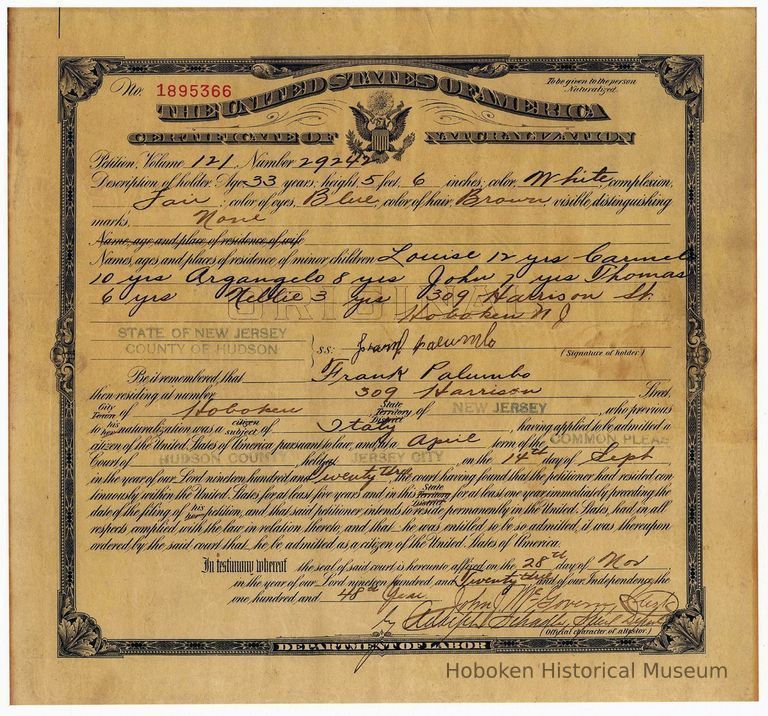 No. 1895366
To be given to the person Naturalized.
THE UNITED STATES OF AMERICA
CERTIFICATE OF NATURALIZATION
Petition, Volume 121, Number 29242
Description of holder: Age, 33 years; height, 5 feet, 6 inches; color, White; complexion,
Fair; color of eyes, Blue; color of hair, Brown; visible distinguishing
marks, None
Name, age and place of residence of wife
Names, ages and places of residence of minor children Louise 12 yrs Carmela
10 yrs Argangelo 8 yrs John 7 yrs Thomas
6 yrs Nellie 3 yrs 309 Harrison St.
Hoboken N J
ORIGINAL
STATE OF NEW JERSEY
COUNTY OF HUDSON
s.s.: Frank Palumbo
(Signature of holder.)
Be it remembered, that Frank Palumbo
then residing at number 309 Harrison Street,
City Town of Hoboken State Territory District of NEW JERSEY, who previous
to his her naturalization was a citizen subject of Italy, having applied to be admitted a
citizen of the United States of America, pursuant to law, and at a April term of the COMMON PLEAS
Court of HUDSON COUNTY held at JERSEY CITY, on the 14th day of Sept
in the year of our Lord nineteen hundred and Twenty three, the court having found that the petitioner had resided con-
tinuously within the United States for at least five years and in this State Territory District for at least one year immediately preceding the
date of the filing of his her petition, and that said petitioner intends to reside permanently in the United States, had in all
respects complied with the law in relation thereto, and that he was entitled to be so admitted, it was thereupon
ordered by the said court that he be admitted as a citizen of the United States of America.
In testimony whereof the seal of said court is hereunto affixed on the 28th day of Nov
in the year of our Lord nineteen hundred and twenty three and of our Independence the
one hundred and 48th Year John J McGovern, Clerk
by
(Official character of attestor.)
DEPARTMENT OF LABOR
Hoboken Historical Museum